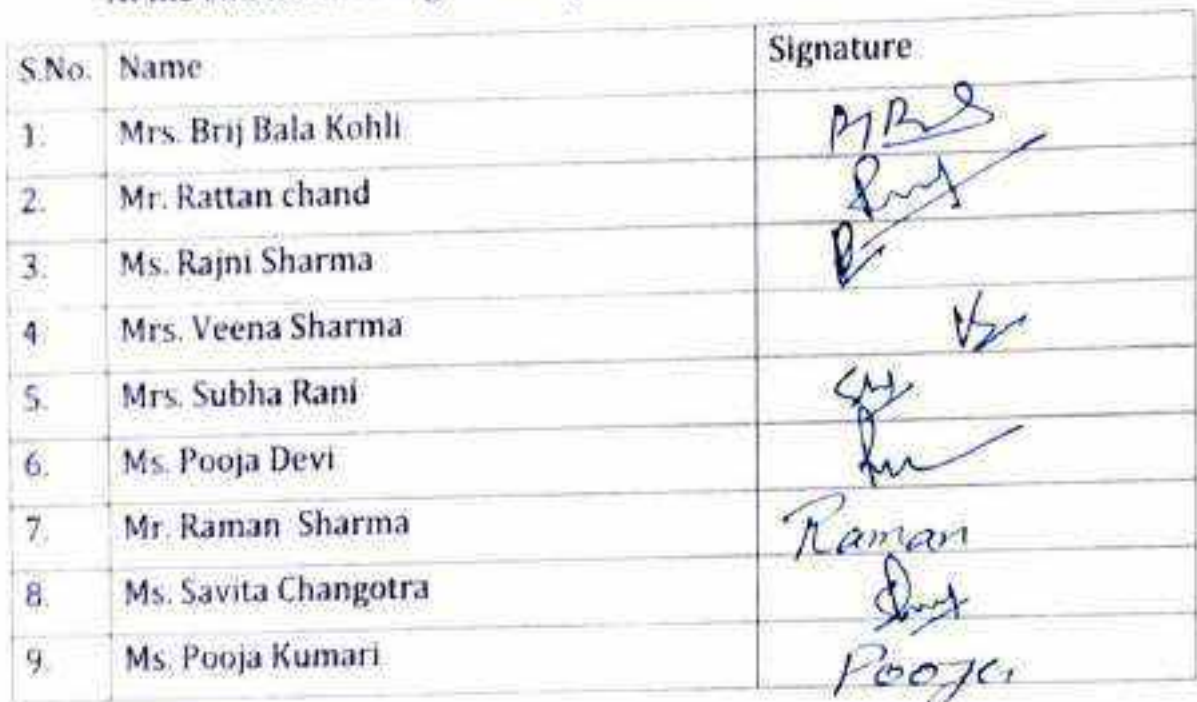 S.No. Name Signature
1. Mrs. Brij Bala Kohli
2. Mr. Rattan chand
3. Ms. Rajni Sharma
4 Mrs. Veena Sharma
5. Mrs. Subha Rani
6. Ms. Pooja Devi
7. Mr. Raman Sharma Raman
8. Ms. Savita Changotra
9. Ms. Pooja Kumari Pooja